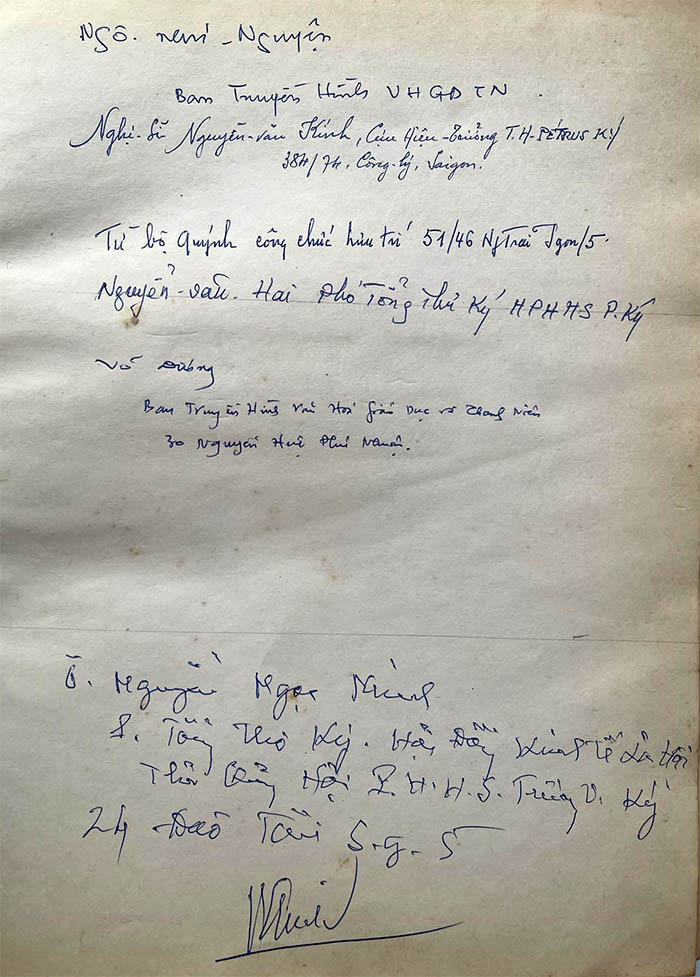 Ngô. - Nguyện
Ban Truyền Hình VHGDTN.
Nghị-Sĩ Nguyễn-văn Kính, Cựu Hiệu-Trưởng T.H-PÉTRUS KÝ
384/74, Công-lý, Saigon.
Từ bộ Quýnh công chức hưu trí 51/46 Ng Trãi Sgon/5.
Nguyễn-văn-Hai Phó Tổng Thư Ký HPHHS P. Ký
Võ Đường
Ban Truyền Hình Văn Hoá Giáo Dục và Thanh Niên
30 Nguyễn Huệ Phú Nhuận.
Ô. Nguyễn Ngọc
P. Tổng Thơ Ký. Hội Đồng Kinh Tế Xã Hội
Thủ Quỹ Hội P.H.H.S. Trương V. Ký
24 Đào Tấn S.g. 5